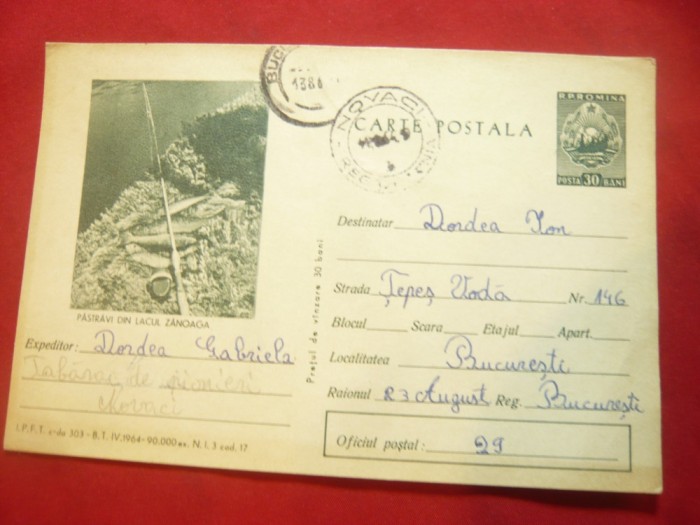 CARTE POSTALA
R.P. ROMINA
POSTA 30 BANI
NOVACI
1386
PĂSTRĂVI DIN LACUL ZĂNOAGA
Expeditor: Dordea Gabriela
Tabăra de pionieri
Novaci
I.P.F.T. c-da 303 - B.T. IV. 1964 - 90.000 ex. N.I. 3 cod. 17
Prețul de vînzare 30 bani
Destinatar Dordea Ion
Strada Țepeș Vodă Nr. 146
Blocul Scara Etajul Apart.
Localitatea București
Raionul 23 August Reg. București
Oficiul poștal: 29